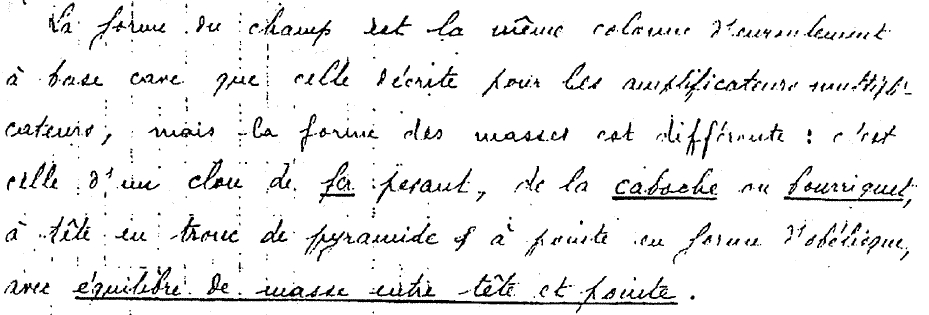 La forme du champ est la même colonne d'enroulement
à base cave que celle décrite pour les amplificateurs multipli-
cateurs, mais la forme des masses est différente : c'est
celle d'un clou de fer pesant, de la caboche ou bourriquet,
à tête en tronc de pyramide & à pointe en forme d'obélisque,
avec équilibre de masse entre tête et pointe.